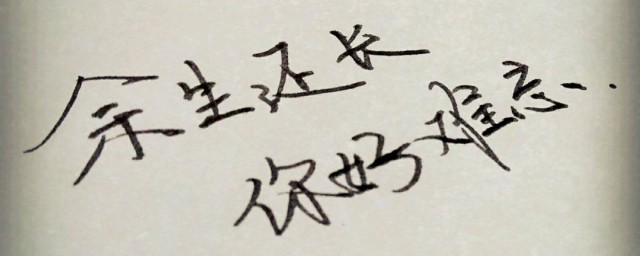 余生还长
你好难忘...